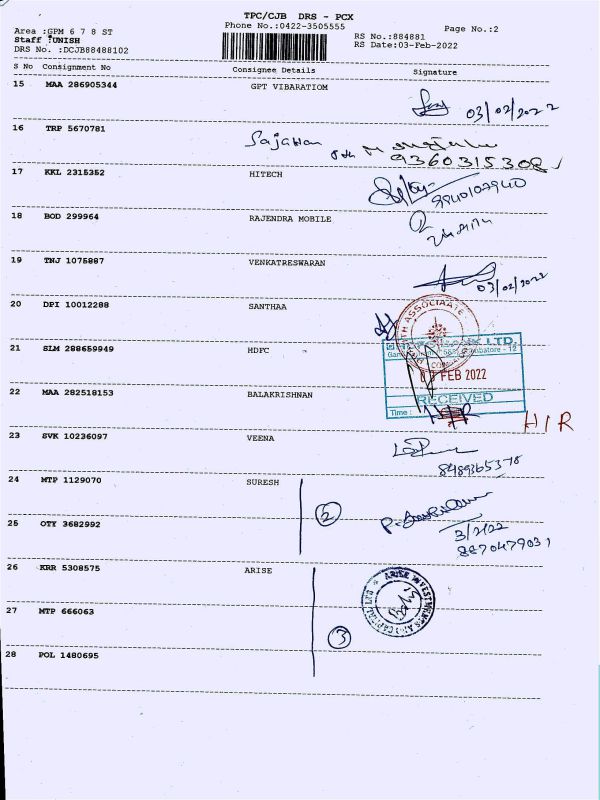 TPC/CJB DRS - PCX
Phone No.:0422-3505555
Page No.:2
Area :GPM 6 7 8 ST
Staff :UNISH
DRS No. :DCJB88488102
RS No.:884881
RS Date:03-Feb-2022
S No Consignment No Consignee Details Signature
15 MAA 286905344 GPT VIBARATIOM
03/02/2022
16 TRP 5670781
9360315308
17 KKL 2315352 HITECH
9840102940
18 BOD 299964 RAJENDRA MOBILE
19 TNJ 1075887 VENKATRESWARAN
03/02/2022
20 DPI 10012288 SANTHAA
21 SLM 288659949 HDFC
LTD.
FEB 2022
22 MAA 282518153 BALAKRISHNAN
RECEIVED
Time :
H/R
23 SVK 10236097 VEENA
8489365378
24 MTP 1129070 SURESH
2
25 OTY 3682992
3/2/22
8870479031
26 KRR 5308575 ARISE
ARISE INVESTMENTS AND CAPITAL
27 MTP 666063
3
28 POL 1480695